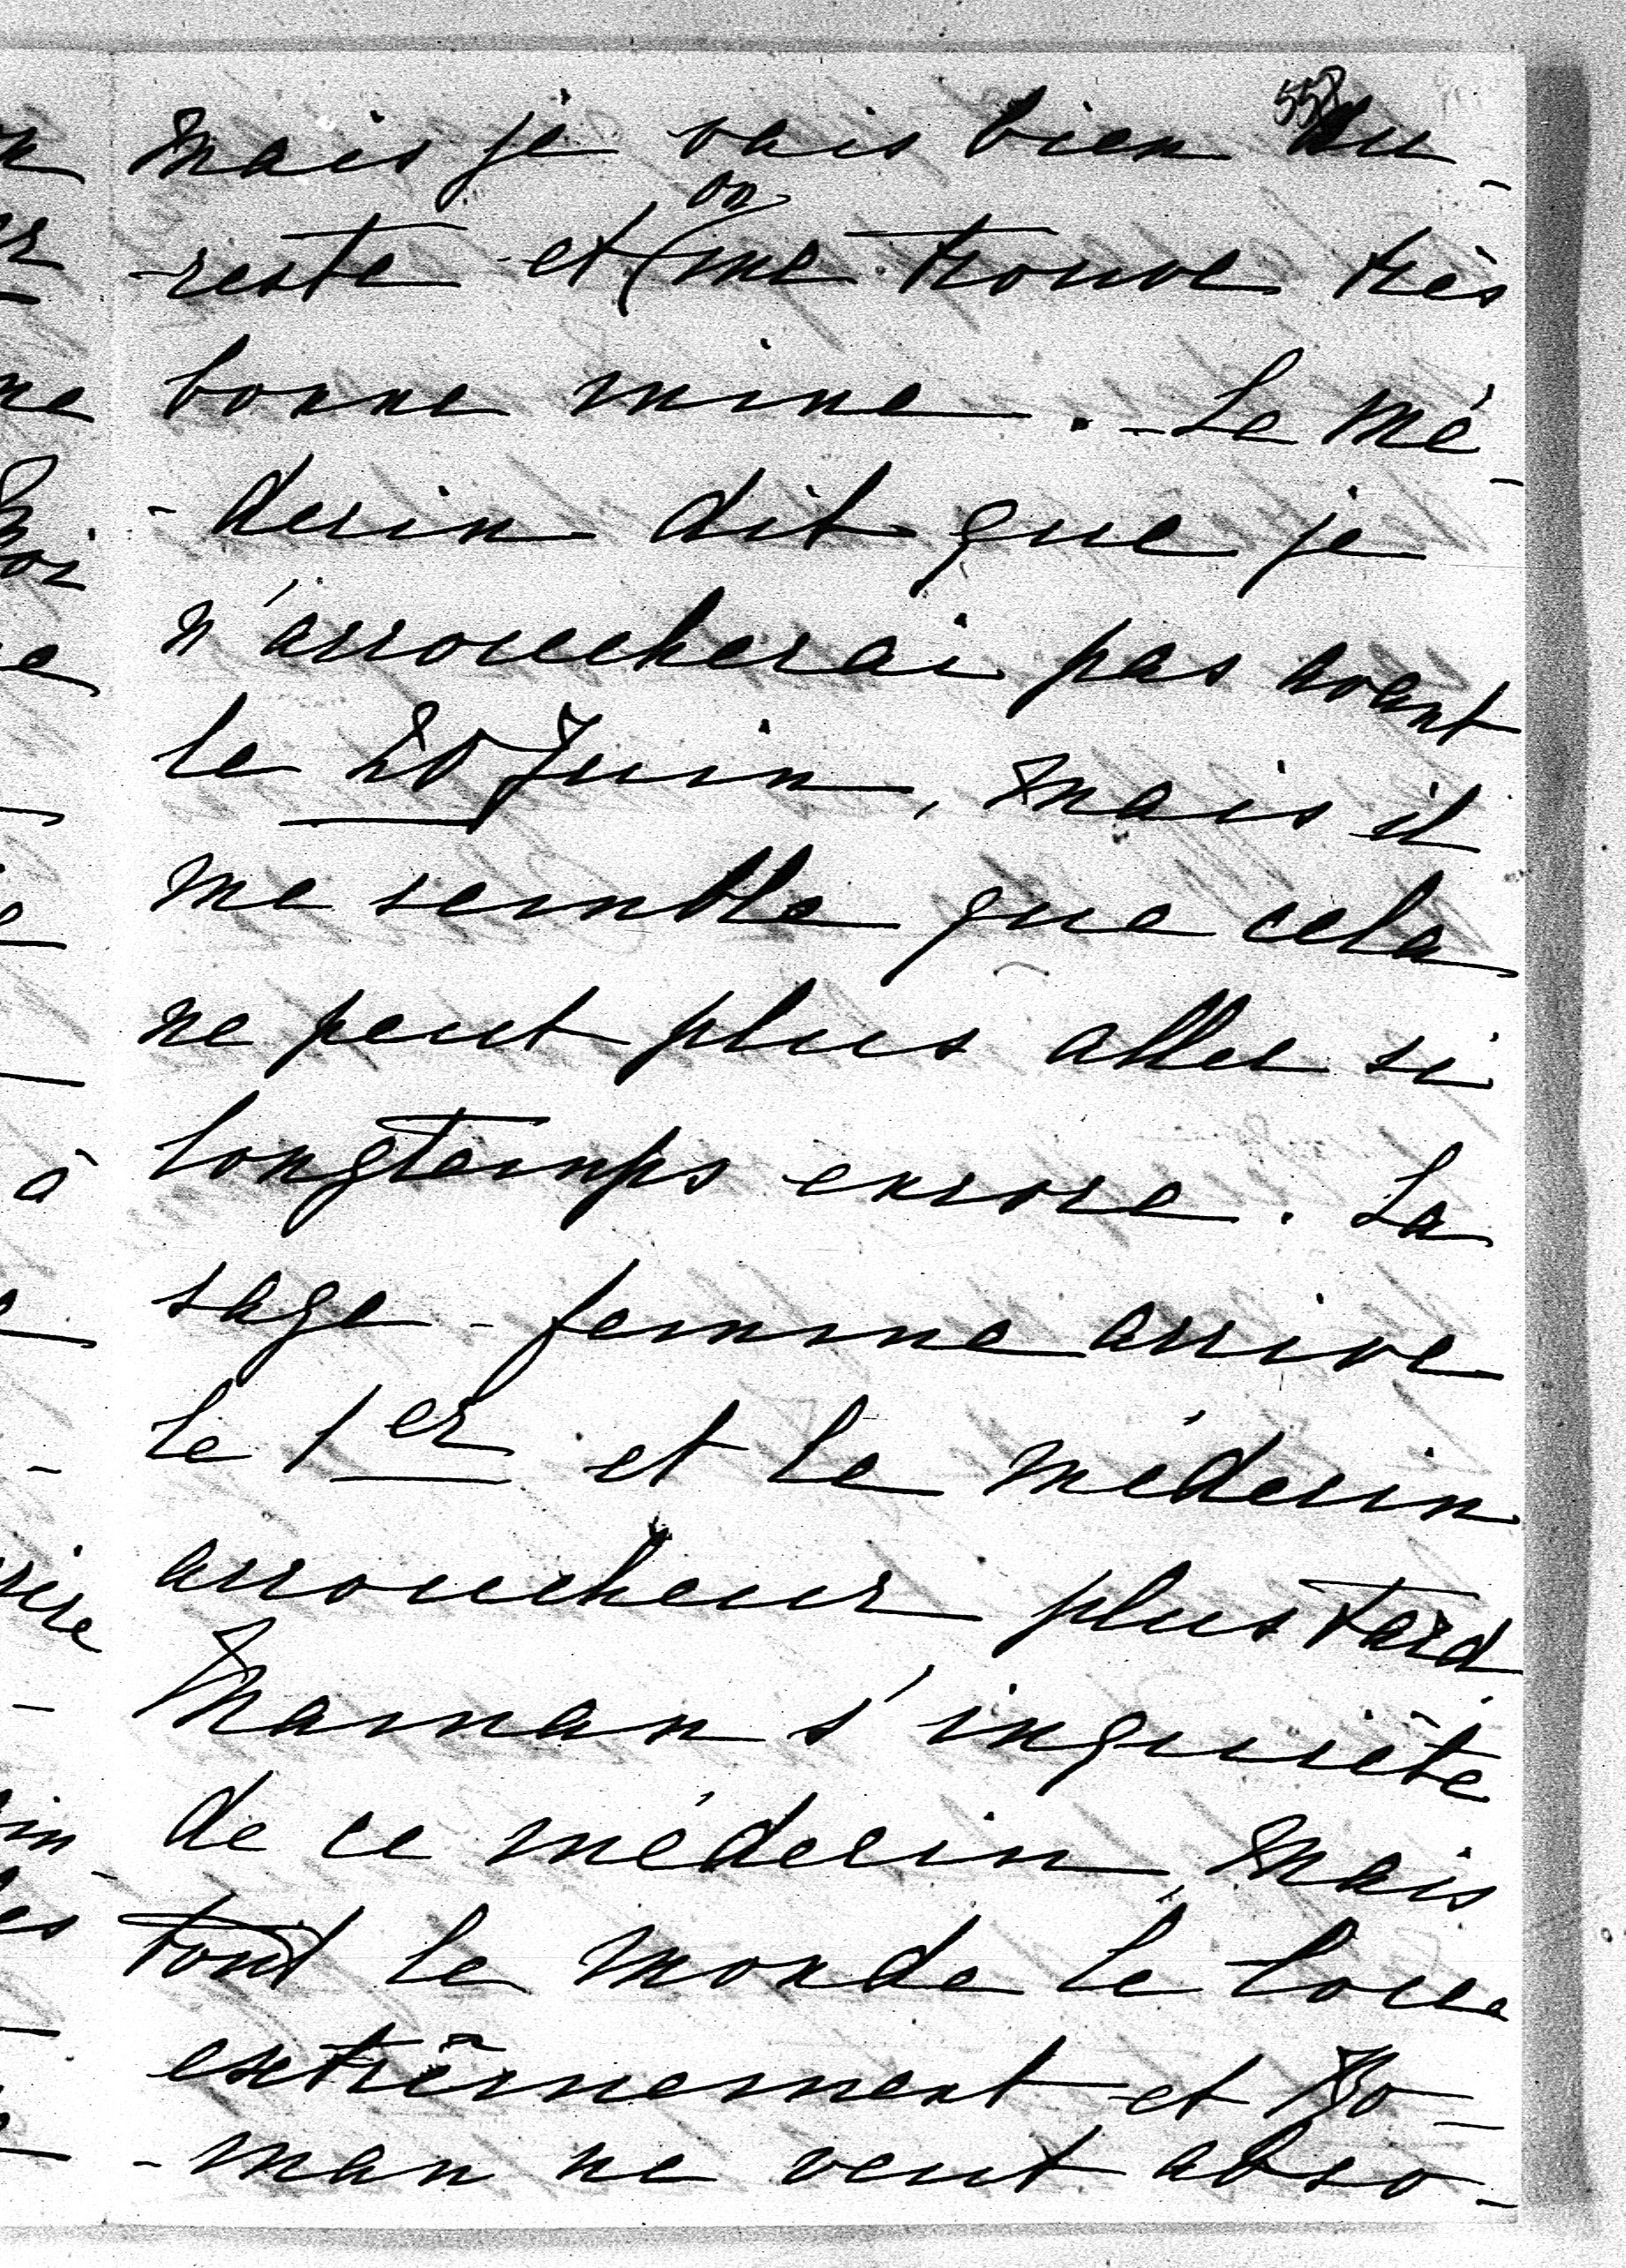 558
mais je vais bien du
reste et on me trouve très
bonne mine. - Le mé-
-decin dit que je
n'accoucherai pas avant
le 20 Juin, mais il
me semble que cela
ne peut plus aller si
longtemps encore. La
sage-femme arrive
le 1er et le médecin
accoucheur plus tard.
Maman s'inquiète
de ce médecin, mais
tout le monde le loue
extrêmement et Ro-
-man ne veut abso-